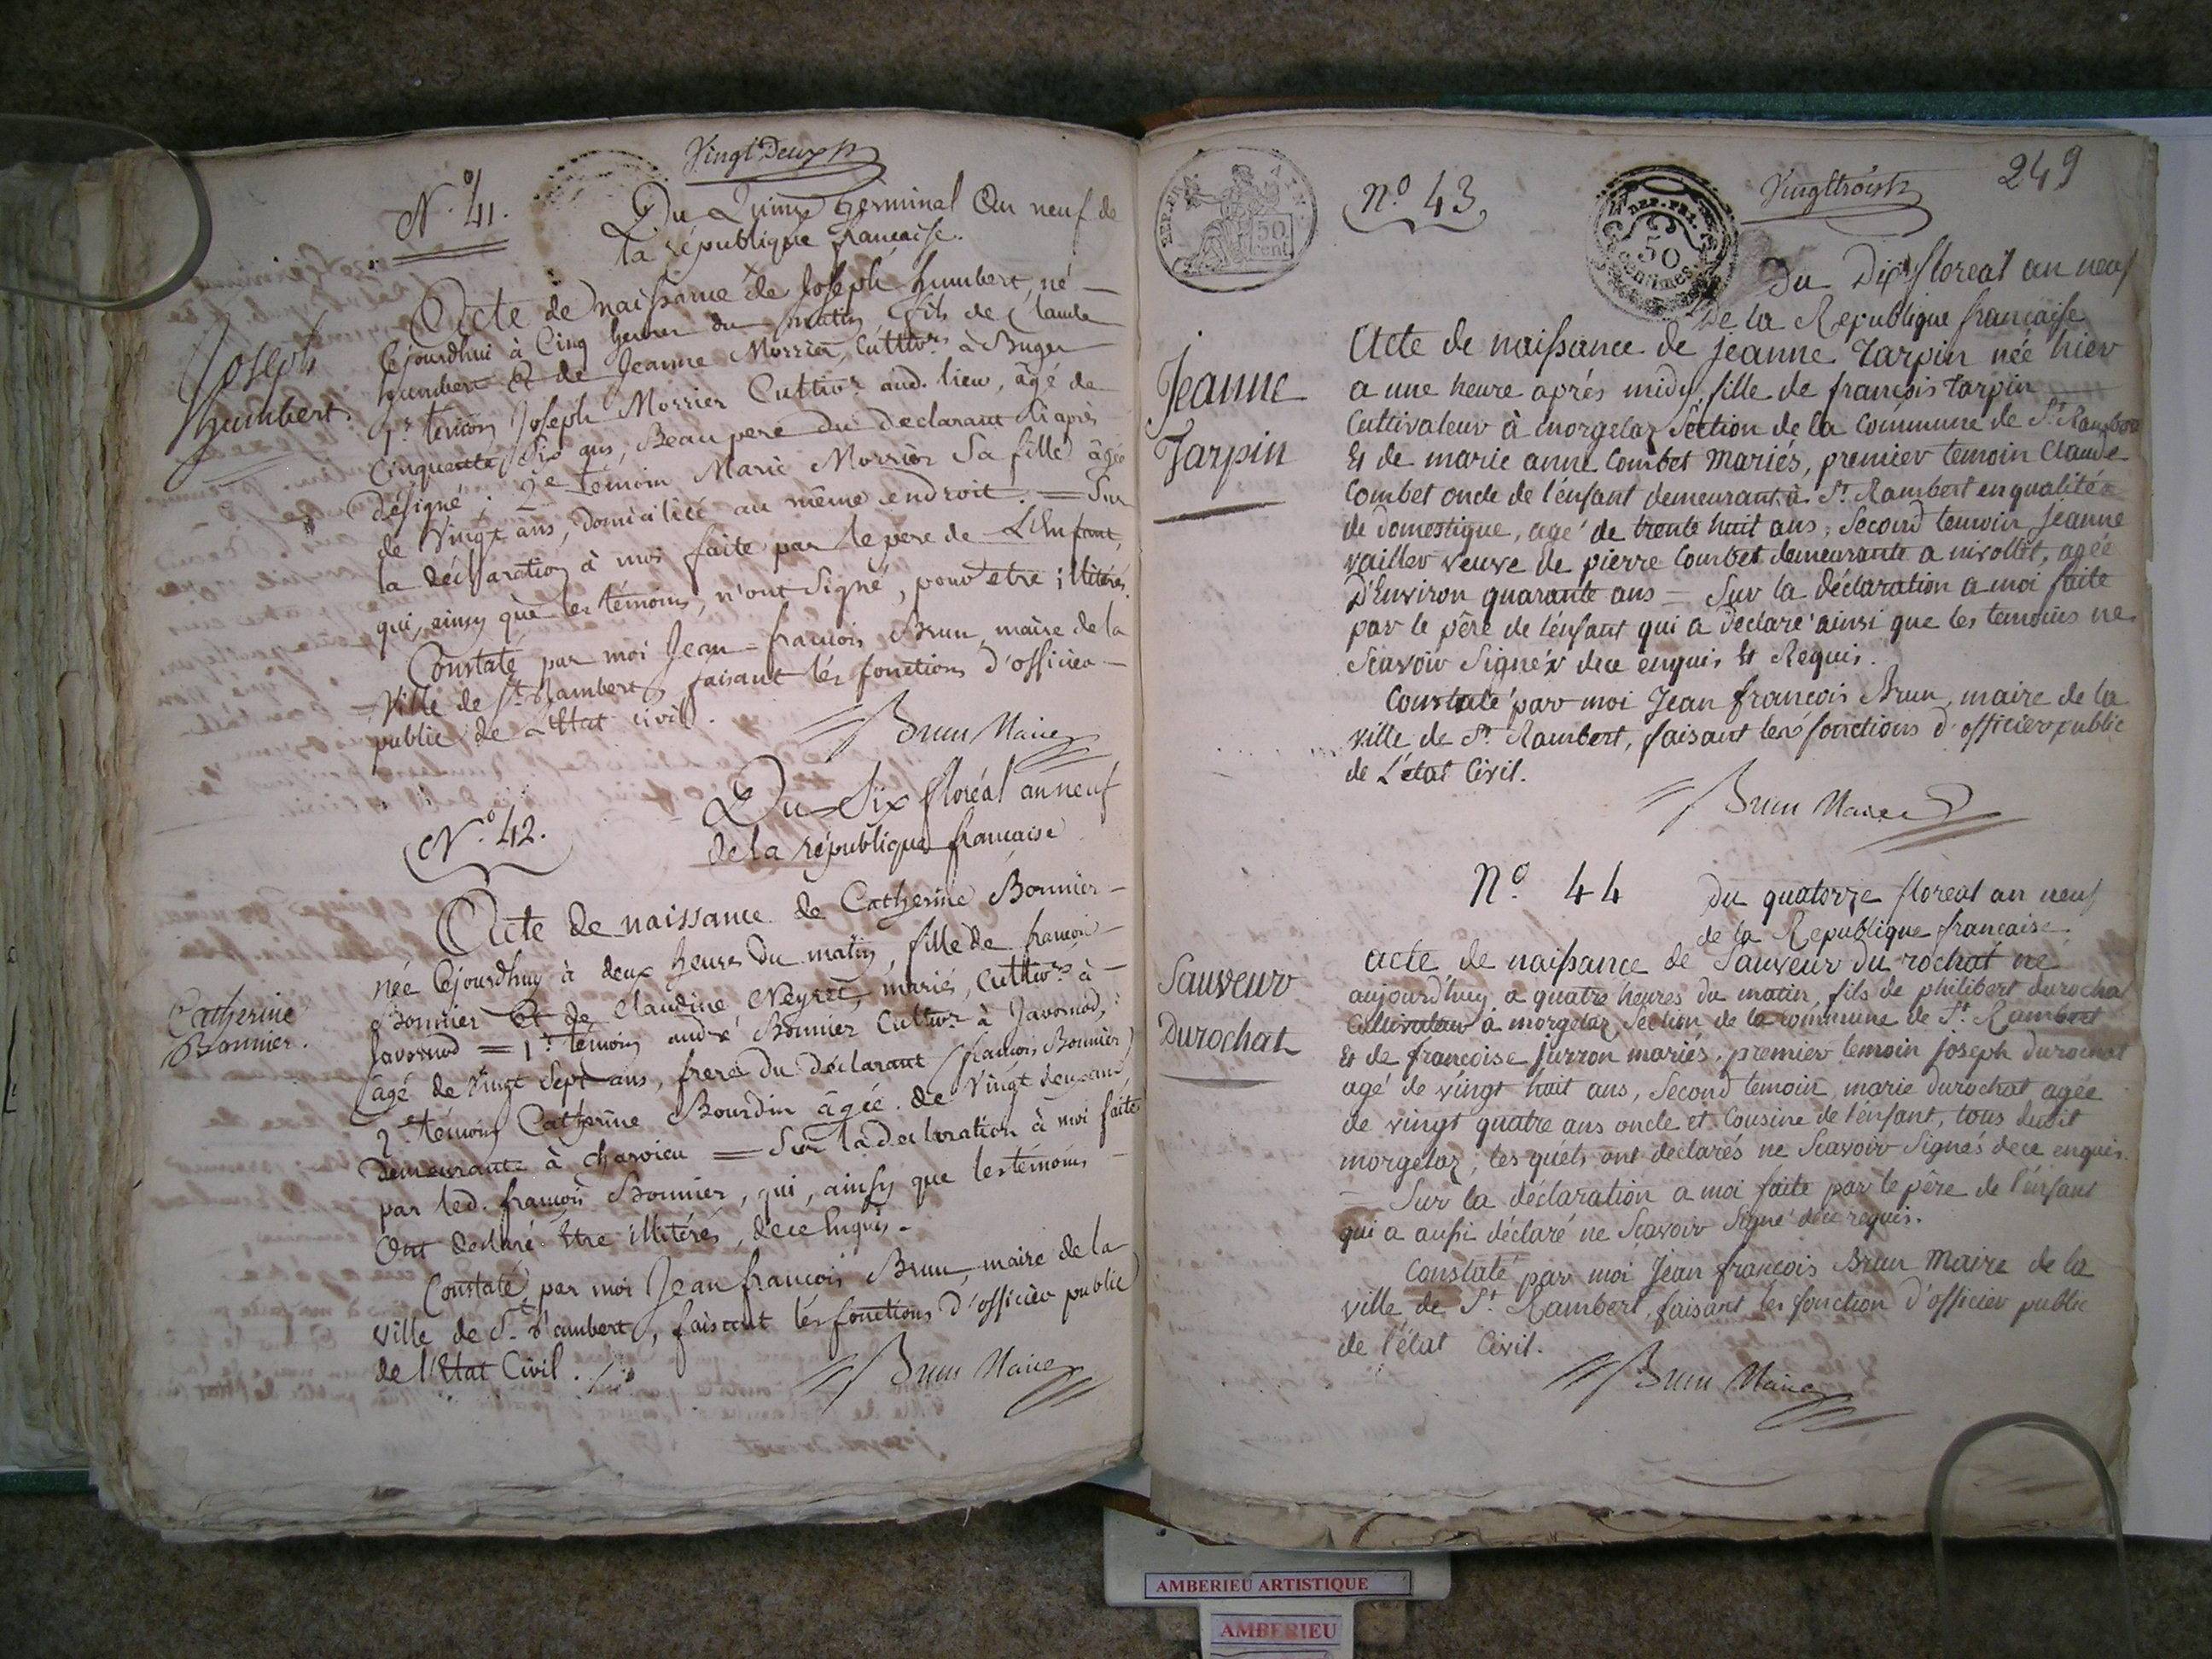 Vingt Deux
N.º 41.
Du Quinze Germinal an neuf de
la république francaise.
Joseph
humbert.
Acte de naissance de Joseph humbert, né
Cejourdhui à Cinq heures du matin fils de Claude
humbert & de Jeanne Morrier, Culttivrs à
1er. temoin Joseph Morrier Cultivr. aud. lieu, âgé de
Cinquante Six ans, Beaupere du declarant Ci après
désigné; 2e temoin Marie Morrier Sa fille âgée
de Vingt ans, domicilièe au même endroit. = Sur
la déclaration à moi faite par le pere de L'Enfant,
qui, ainsy que les témoins, n'ont Signé, pour etre illitérés.
Constaté par moi Jean-francois Brun, maire de la
Ville de St. Rambert, faisant les fonctions d'officier
public de L'Etat civil.
Brun Maire
N.º 42.
Du Six floréal an neuf
de la république francaise
Catherine
Bonnier.
Acte de naissance de Catherine Bonnier
née Cejourdhuy à deux heures du matin, fille de francois
Bonnier Et de Claudine Neyret, mariés, Culttivrs à
Javornod = 1er. témoin andré Bonnier Culttivr. à Javornod,
âgé de Vingt Sept ans, frere du déclarant (francois Bonnier)
2e témoin Catherine Bourdin âgée de Vingt deux ans
Demeurante à Charvieu = Sur la declaration à moi faite
par led. francois Bonnier, qui, ainsy que les témoins
Ont declaré Etre illitérés, de ce Enquis.
Constaté par moi Jean francois Brun, maire de la
ville de St. Rambert, faisant les fonctions d'officier public
de l'Etat Civil.
Brun Maire
REP. FRA.
50
cent.
Nº 43
REP. FRA.
50
centimes.
Vingt trois
249
Du Dix floreal an neuf
De la Republique francaise
Jeanne
Tarpin
Acte de naissance de Jeanne Tarpin née hier
a une heure aprés midy, fille de francois tarpin
Cultivateur à morgelaz Section de la Commune de St. Rambert
Et de marie anne Combet Mariés, premier temoin Claude
Combet oncle de l'énfant demeurant à St. Rambert en qualité
de domestique, agé de trente huit ans, Second temoin Jeanne
vailler veuve de pierre Combet demeurante a nivollet, agée
D'Environ quarante ans = Sur la déclaration a moi faite
par le pêre de l'énfant qui a déclaré ainsi que les temoins ne
Scavoir Signér de ce enquis Et Requis.
Constaté par moi Jean francois Brun, maire de la
ville de St. Rambert, faisant les fonctions d'officier public
de L'état Civil.
Brun Maire
Nº 44
Du quatorze floreal an neuf
de la Republique francaise
Sauveur
Durochat
acte de naissance de Sauveur du rochat né
aujourd'huy a quatre heures du matin, fils de philibert durochat
Cultivateur à morgelaz, Section de la commune de St. Rambert
Et de francoise Juron mariés, premier temoin joseph durochat
agé de vingt huit ans, Second temoin marie durochat agée
de vingt quatre ans oncle et Cousine de l'énfant, tous dudit
morgelaz, les quéls ont declarés ne Scavoir Signés de ce enquis.
Sur la déclaration a moi faite par le pêre de l'énfant
qui a aussi déclaré ne Scavoir Signé de ce requis.
Constaté par moi Jean francois Brun Maire de la
ville de St. Rambert, faisant les fonction d'officier public
de l'état Civil.
Brun Maire
AMBERIEU ARTISTIQUE
AMBERIEU